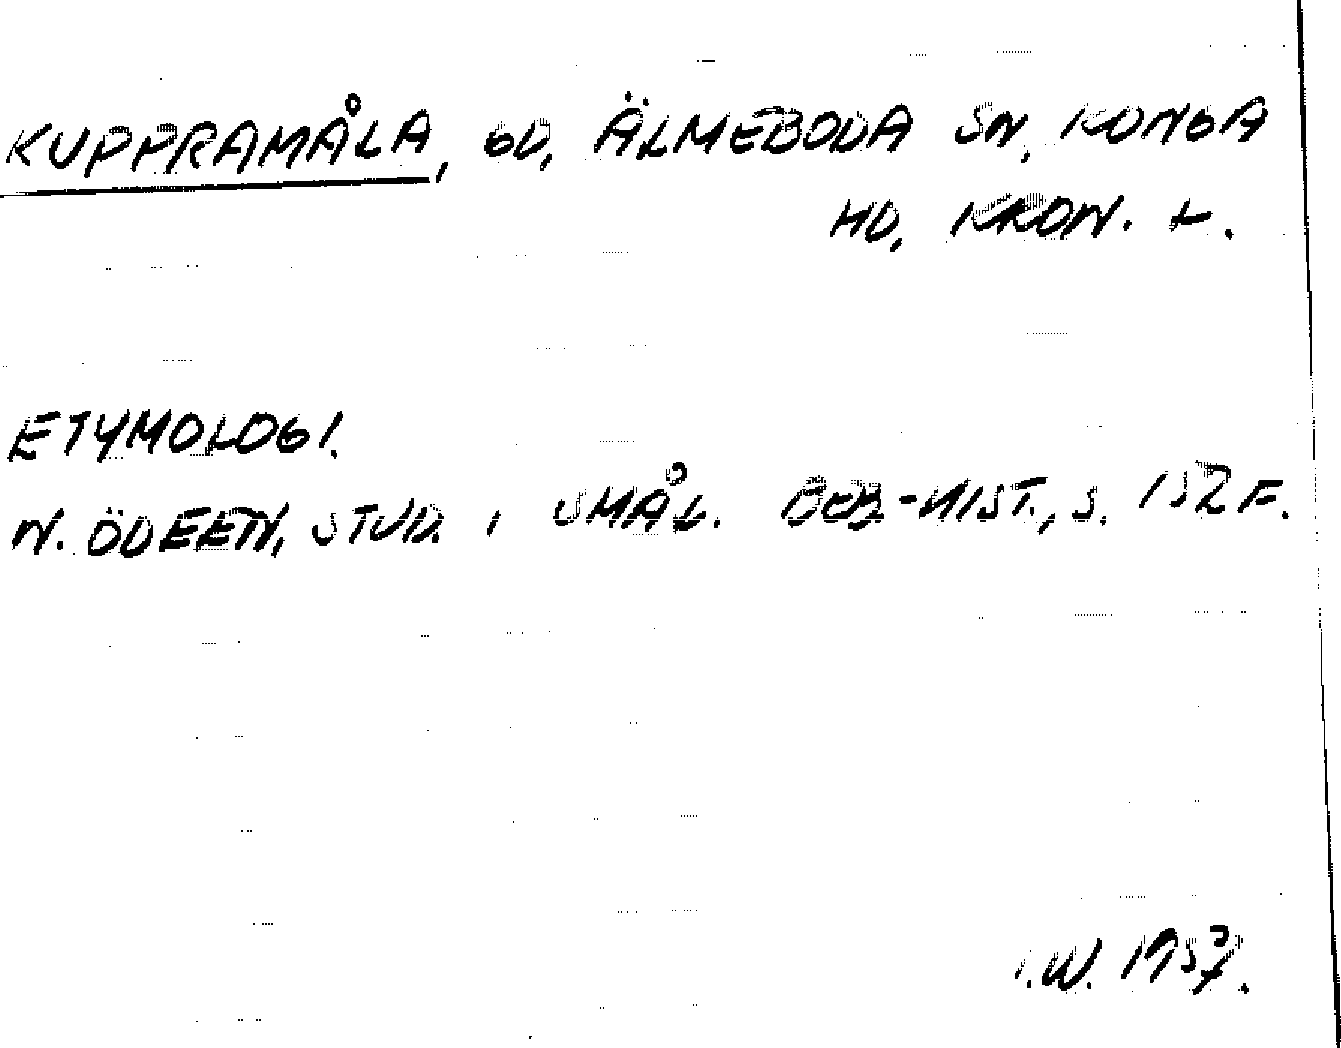 KUPPRAMÅLA, GD, ÄLMEBODA SN, KONGA
HD, KRON. L.
ETYMOLOGI.
N. ÖDEEN, STUD. I SMÅL. BEB-HIST., S. 152 F.
I.W. 1957.